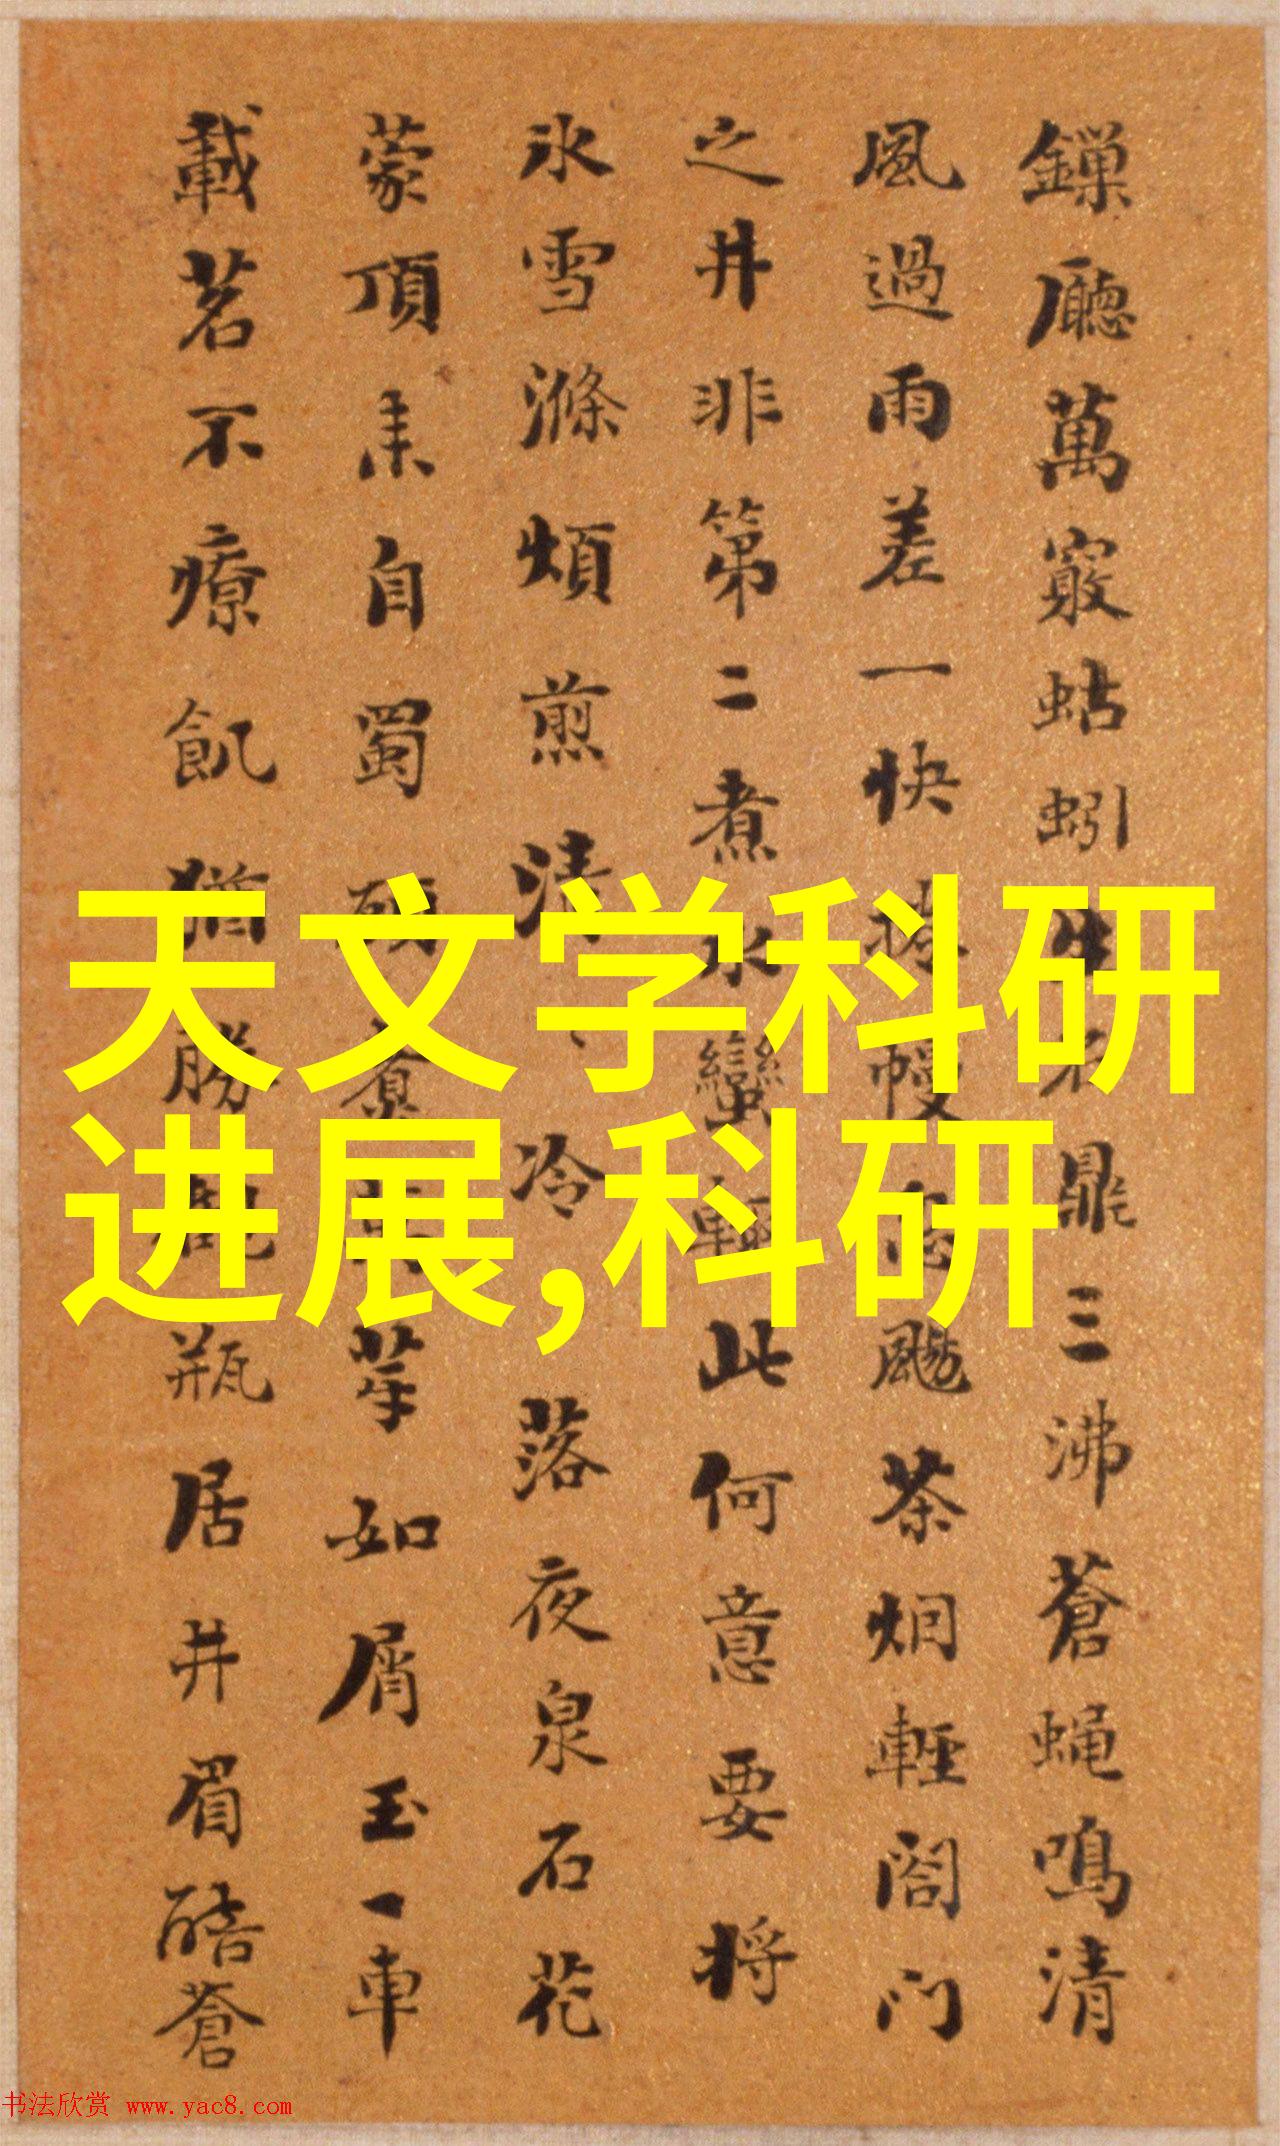 鏁廳萬竅蚯蚓
鼎三沸蒼蝇鳴清
風過雨差一快
颺茶烟輕閤門
之井非第二煮水蠻
此何意要将
氷雪滌煩煎清
冷落夜泉石花
蒙頂来自蜀
芽如屑玉一車
載茗不療飢猶勝
瓶居井眉酷蒼
天文学科研
进展,科研
书法欣赏 www.yac8.com